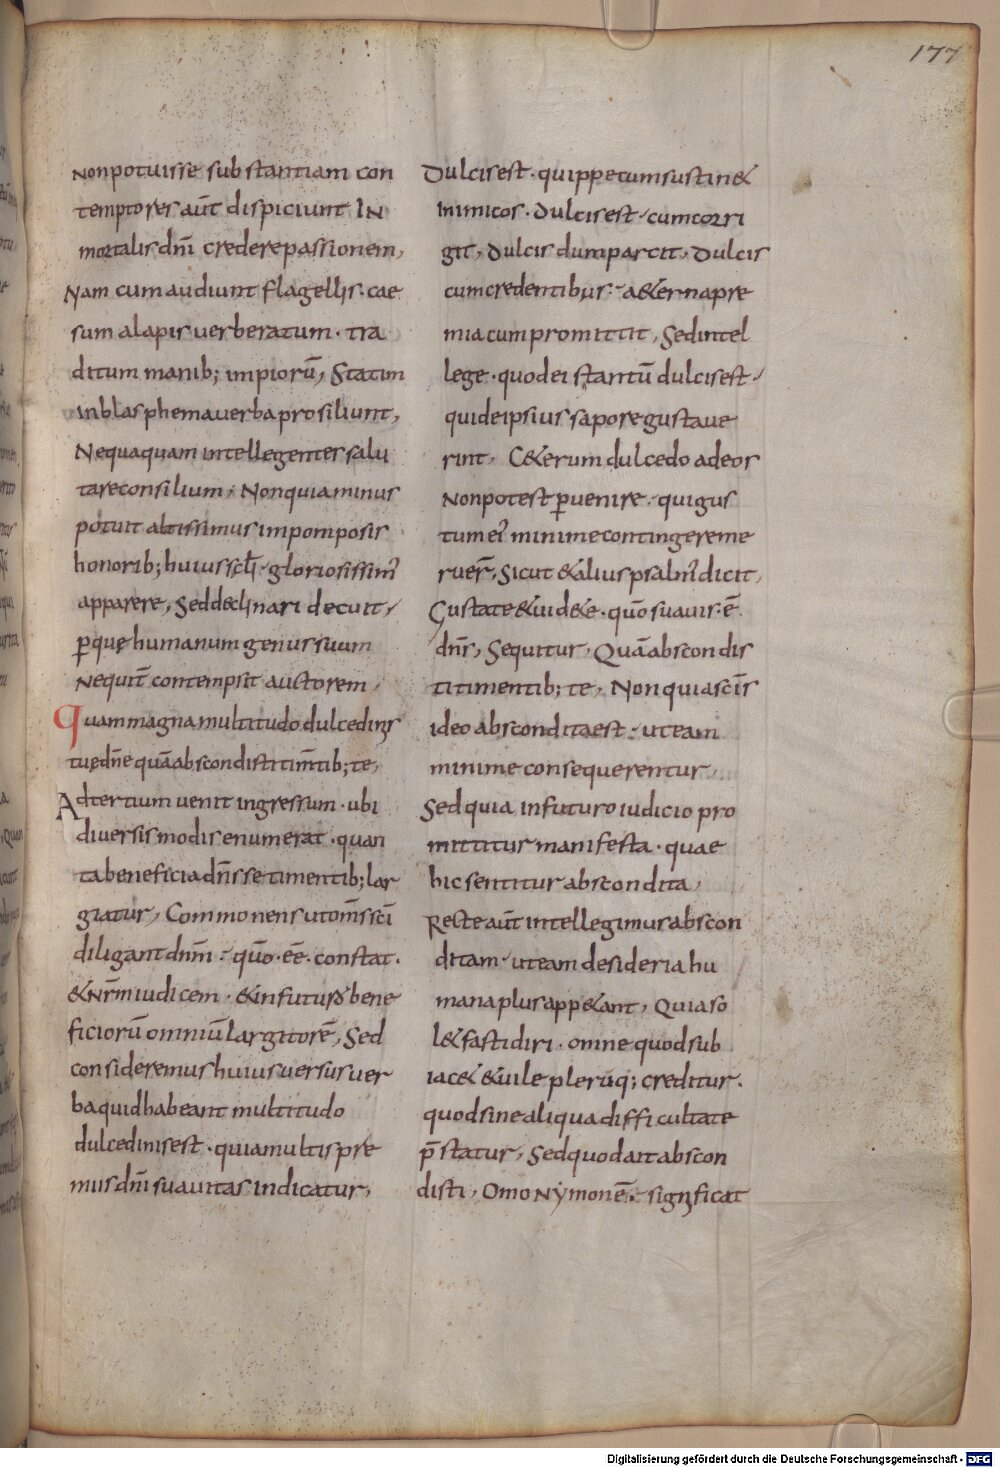 177
non potuisse substantiam con
temptores aut̄ dispiciunt In
mortalis dn̄i credere passionem,
Nam cum audiunt flagellis · cae
sum alapis uerberatum · tra
ditum manib; impiorū, Statim
in blasphema uerba prosiliunt,
Nequaquam intellegentes salu
tare consilium, Non quia minus
potuit altissimus in pomposis
honorib; huius sc̄li · gloriosissim'
apparere, Sed declinari decuit,
p̄ quę humanum genus suum
nequit̄ contempsit auctorem,
Quam magna multitudo dulcedinis
tuę dn̄e quā abscondisti tim̄tib; te,
Ad tertium uenit ingressum · ubi
diuersis modis enumerat · quan
ta beneficia dn̄s se timentib; lar
giatur, Commonens ut om̄s sc̄i
diligant dn̄m · quō · eē · constat ·
& nr̄m iudicem · & in futurō bene
ficiorū omniū largitorē, Sed
consideremus huius uersus uer
ba quid habeant multitudo
dulcedinis est · quia multis pre
miis dn̄i suauitas indicatur,
Dulcis est · quippe cum sustin&
inimicos · Dulcis est · cum corri
git, Dulcis dum parcit, Dulcis
cum credentibus · a&erna pre
mia cum promittit, Sed intel
lege · quod ei stantū dulcis est ·
qui de ipsius sapore gustaue
rint, C&erum dulcedo ad eos
non potest p̄uenire · qui gus
tum ei' minime contingere me
ruer̄, Sicut & alius psalm' dicit,
Gustate & uid&e · quō suauis · ē
dn̄s, Sequitur, Quā abscondis
ti timentib; te, Non quia sc̄is
ideo abscondita est · ut eam
minime consequerentur,
Sed quia in futuro iudicio pro
mittitur manifesta · quae
hic sentitur abscondita,
Recte aut̄ intellegimus abscon
ditam · ut eam desideria hu
mana plus app&ant, Quia so
l& fastidiri · omne quod sub
iac& & uile pleruq; creditur ·
quod sine aliqua difficultate
p̄statur, Sed quod ait abscon
disti, Omonymon ē · significat
Digitalisierung gefördert durch die Deutsche Forschungsgemeinschaft - DFG